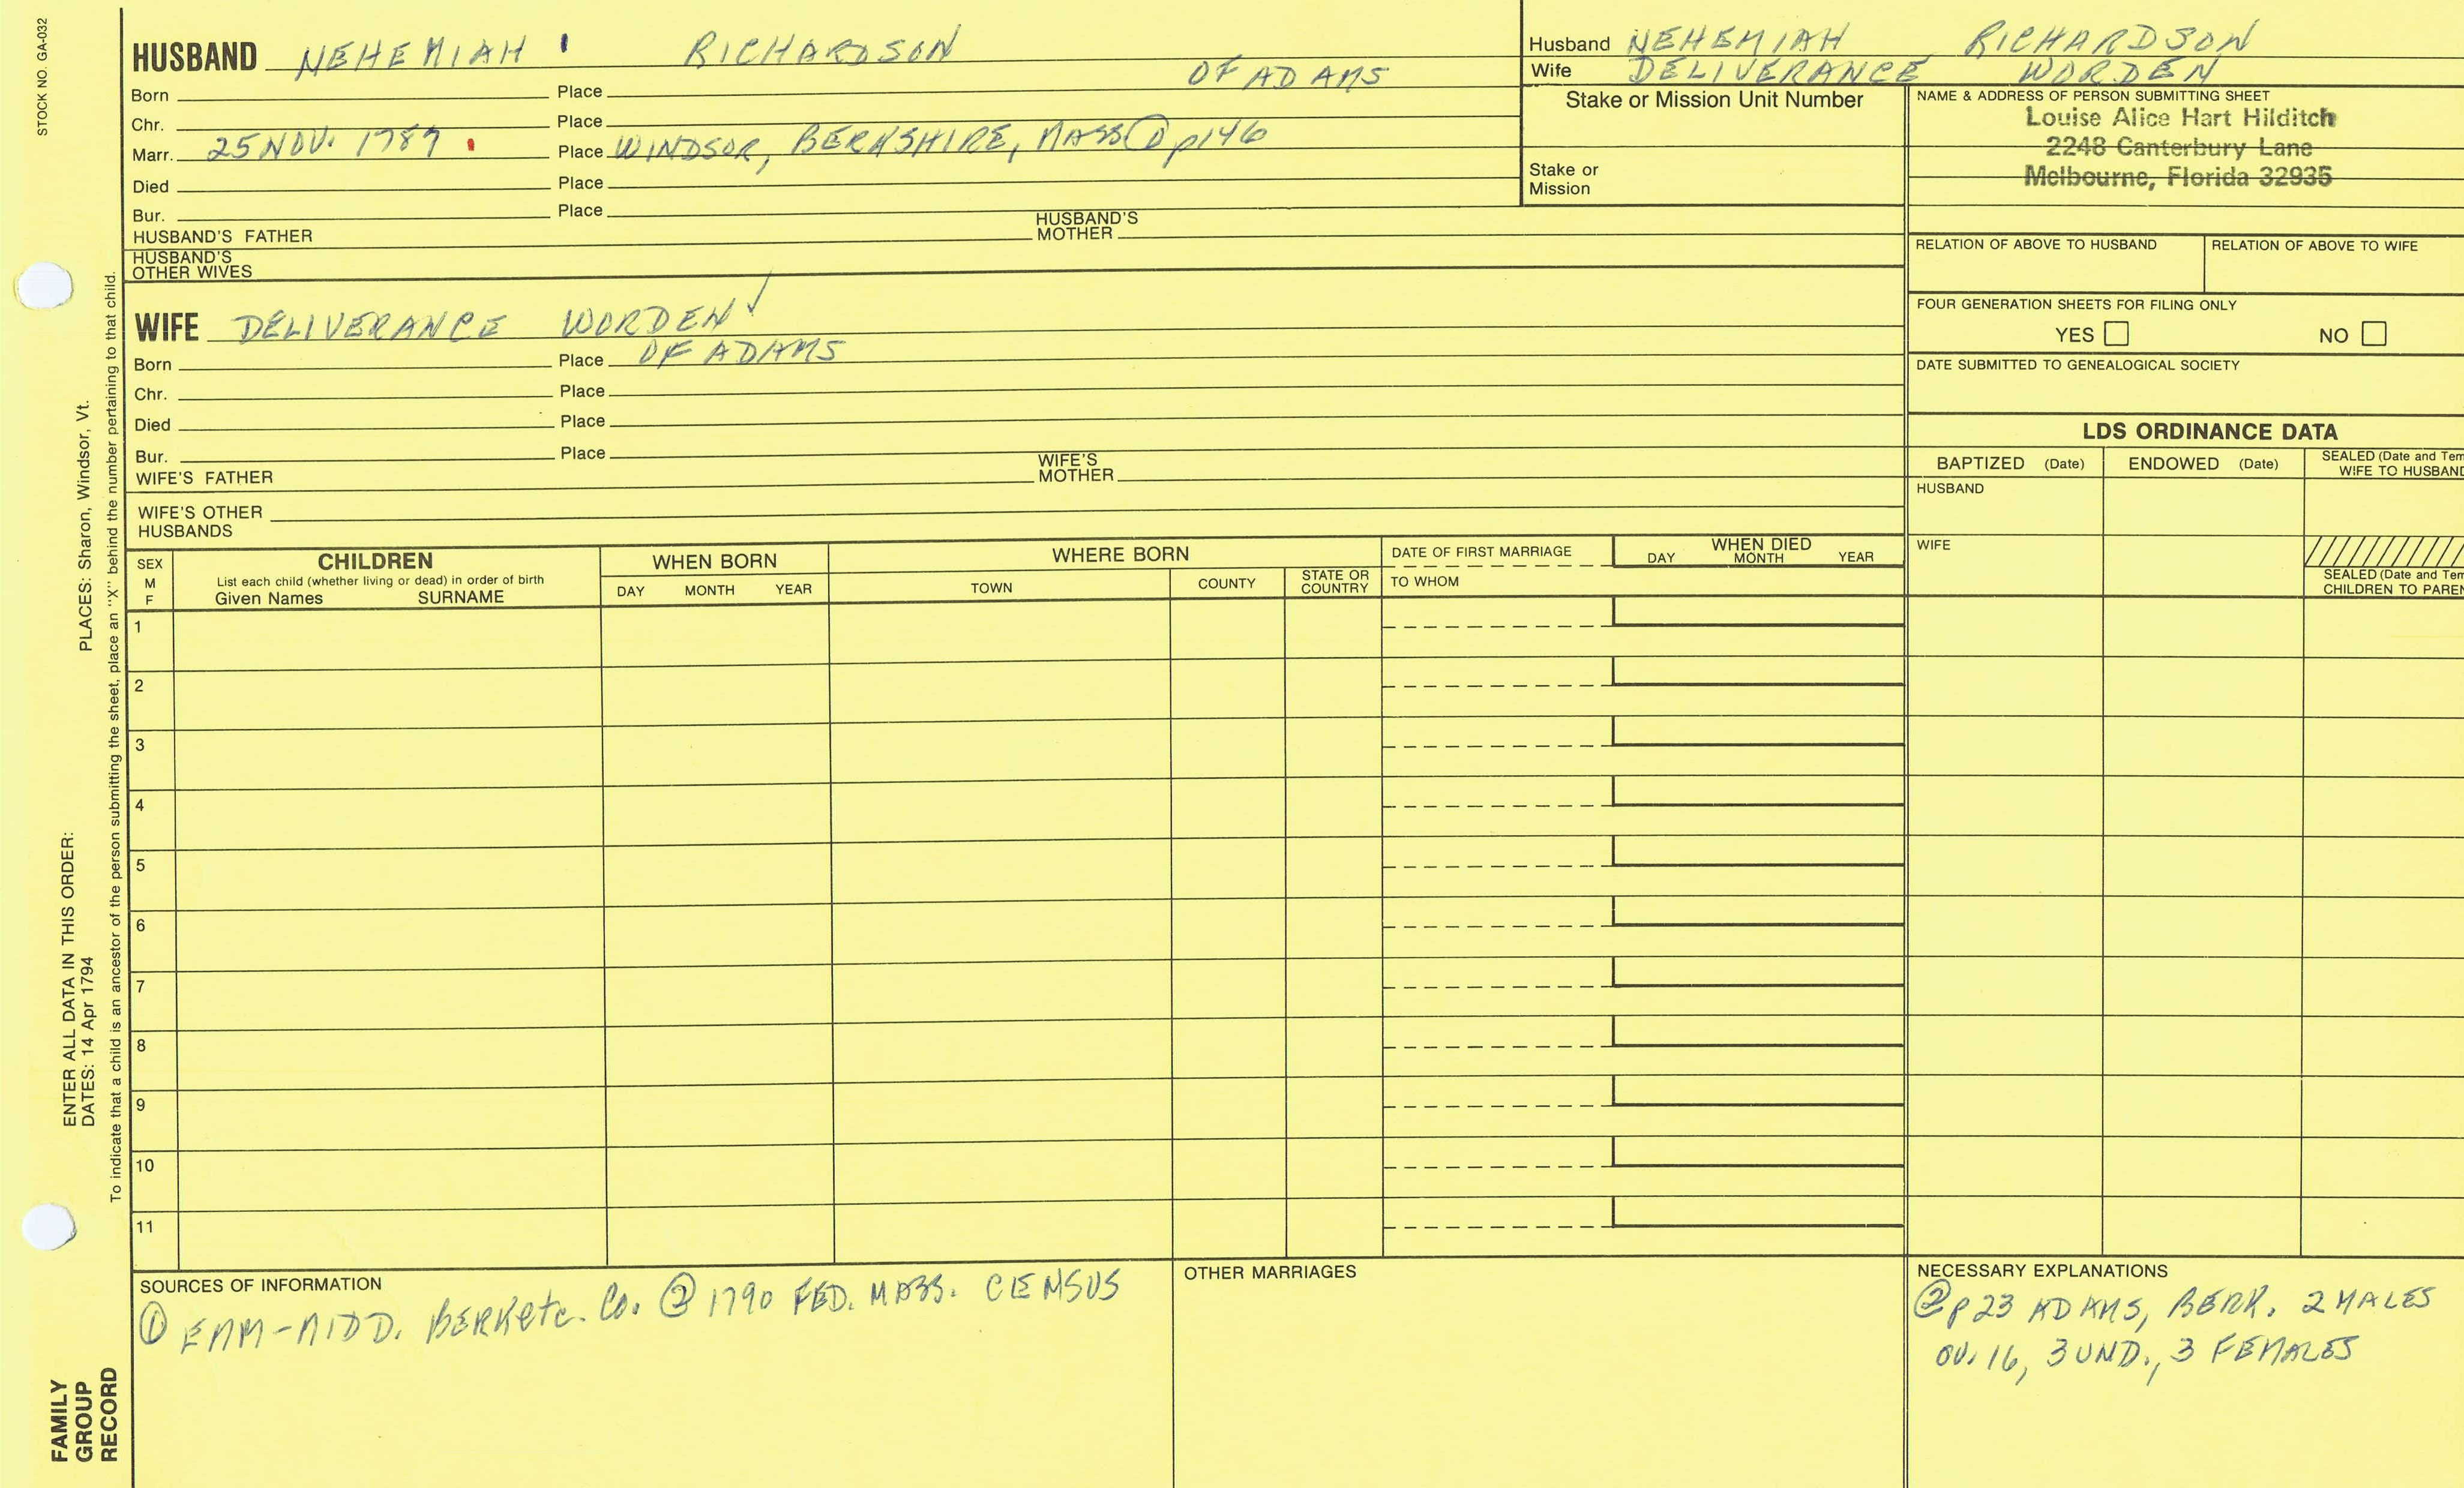 STOCK NO. GA-032
HUSBAND NEHEMIAH RICHARDSON
OF ADAMS
Born Place
Chr. Place
Marr. 25 NOV. 1789 Place WINDSOR, BERKSHIRE, MASS ① p146
Died Place
Bur. Place
HUSBAND'S FATHER HUSBAND'S MOTHER
HUSBAND'S OTHER WIVES
WIFE DELIVERANCE WORDEN ✓
Born Place OF ADAMS
Chr. Place
Died Place
Bur. Place
WIFE'S FATHER WIFE'S MOTHER
WIFE'S OTHER HUSBANDS
Husband NEHEMIAH RICHARDSON
Wife DELIVERANCE WORDEN
Stake or Mission Unit Number
Stake or
Mission
NAME & ADDRESS OF PERSON SUBMITTING SHEET
Louise Alice Hart Hilditch
2248 Canterbury Lane
Melbourne, Florida 32935
RELATION OF ABOVE TO HUSBAND RELATION OF ABOVE TO WIFE
FOUR GENERATION SHEETS FOR FILING ONLY
YES NO
DATE SUBMITTED TO GENEALOGICAL SOCIETY
LDS ORDINANCE DATA
BAPTIZED (Date) ENDOWED (Date) SEALED (Date and Tem
WIFE TO HUSBAND
HUSBAND
WIFE
SEALED (Date and Tem
CHILDREN TO PAREN
SEX
M
F
CHILDREN
List each child (whether living or dead) in order of birth
Given Names SURNAME
WHEN BORN
DAY MONTH YEAR
WHERE BORN
TOWN COUNTY STATE OR COUNTRY
DATE OF FIRST MARRIAGE
TO WHOM
WHEN DIED
DAY MONTH YEAR
1
2
3
4
5
6
7
8
9
10
11
SOURCES OF INFORMATION
① EMM-MIDD. BERKetc. Co. ② 1790 FED. MASS. CENSUS
OTHER MARRIAGES
NECESSARY EXPLANATIONS
② p 23 ADAMS, BERK. 2 MALES
OV. 16, 3 UND., 3 FEMALES
ENTER ALL DATA IN THIS ORDER:
DATES: 14 Apr 1794 PLACES: Sharon, Windsor, Vt.
To indicate that a child is an ancestor of the person submitting the sheet, place an "X" behind the number pertaining to that child.
FAMILY
GROUP
RECORD